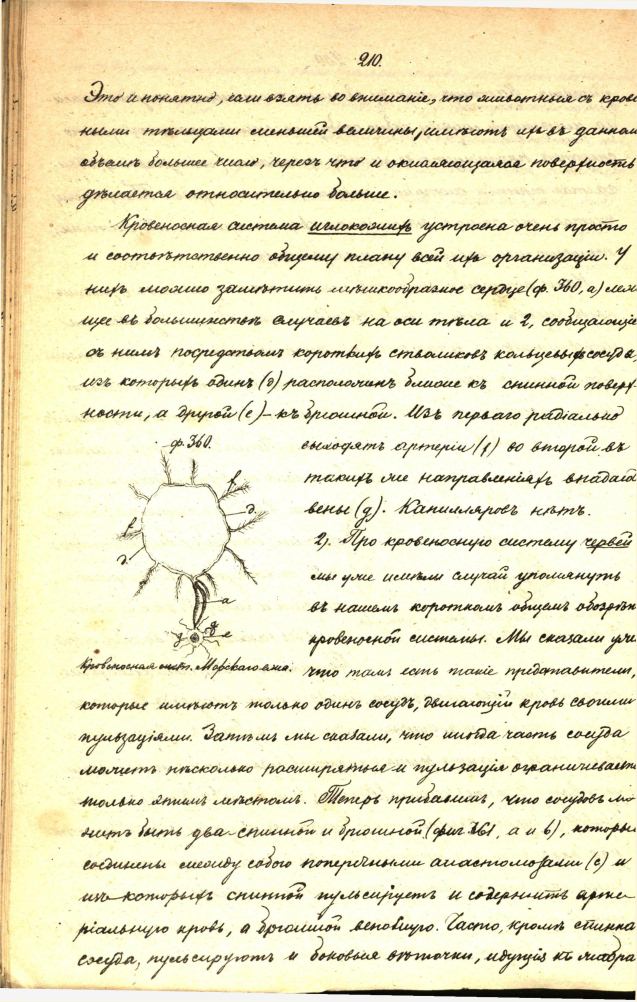 210.
Это и понятно, если взять во вниманіе, что животныя съ кровя
ными тѣльцами меньшей величины, имѣютъ ихъ въ данном
объемѣ большее число, черезъ что и окисляющаяся поверхность
дѣлается относительно больше.
Кровеносная система иглокожихъ устроена очень просто
и соотвѣтственно общему плану всей ихъ организаціи. У
нихъ можно замѣтить мѣшкообразное сердце (ф. 360, а) леж
щее въ большинствѣ случаевъ на оси тѣла и 2, сообщающіе
съ нимъ посредствомъ короткихъ стволиковъ кольцевыхъ сосуда,
изъ которыхъ одинъ (д) расположенъ ближе къ спинной поверх
ности, а другой (е) – къ брюшной. Изъ перваго радіально
ф. 360.
выходятъ артеріи (f) во второй въ
такихъ же направленіяхъ впадаю
вены (g). Капилляровъ нѣтъ.
2). Про кровеносную систему червей
мы уже имѣли случай упомянуть
въ нашемъ короткомъ общемъ обозрѣн
кровеносной системы. Мы сказали уже
что тамъ есть такіе представители,
f
д.
f
д.
а
g
g
е
Кровеносная сист. Морскаго ежа.
которые имѣютъ только одинъ сосудъ, двигающій кровь своими
пульзаціями. Затѣмъ мы сказали, что иногда часть сосуда
можетъ нѣсколько расширяться и пульзація ограничивает
только этимъ мѣстомъ. Теперь прибавимъ, что сосудовъ мо
жетъ быть два – спинной и брюшной (фиг 361, а и b), которые
соединены между собою поперечными анастомозами (с) и
изъ которыхъ спинной пульсируетъ и содержитъ арте
ріальную кровь, а брюшной венозную. Часто, кромѣ спинна
сосуда, пульсируютъ и боковыя вѣточки, идущія къ жабра